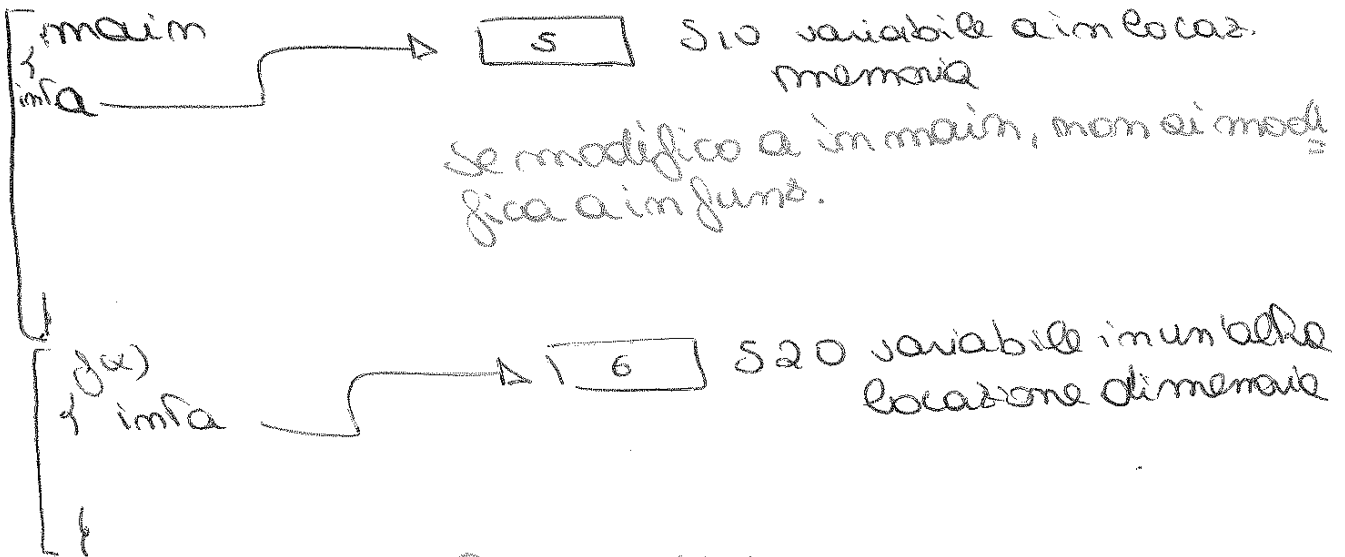 main
{
int a 5 510 variabile a in locaz.
memoria
Se modifico a in main, non si modi
fica a in funz.
}
f(x)
{ int a 6 520 variabile in un'altra
locazione di memoria
}